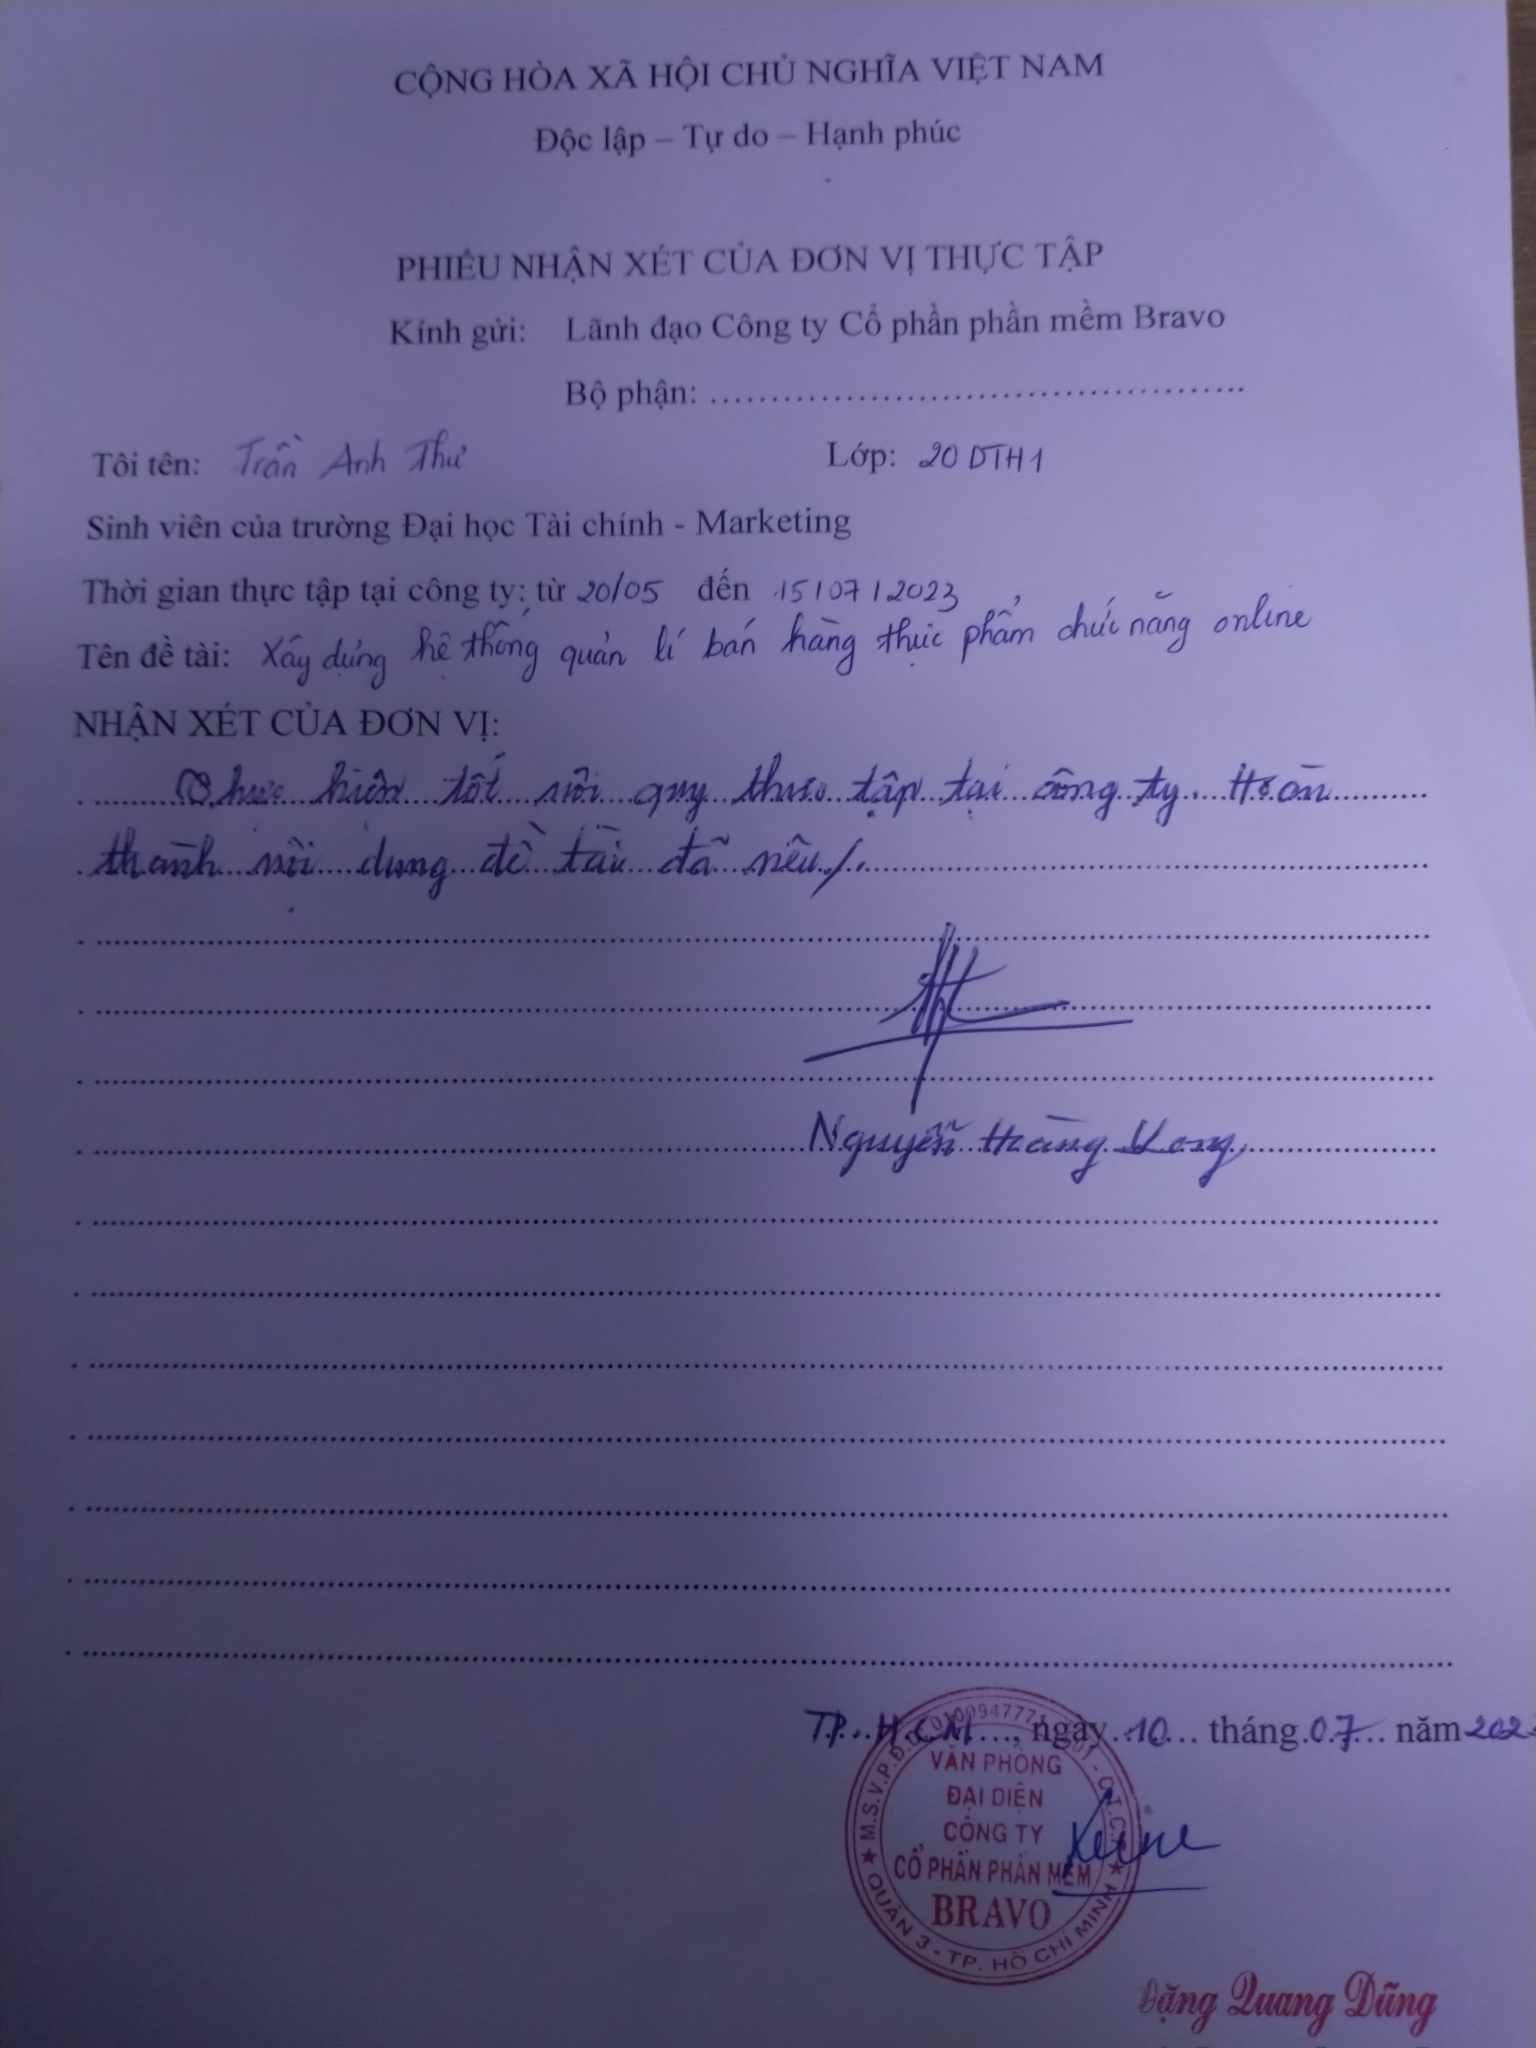 CỘNG HÒA XÃ HỘI CHỦ NGHĨA VIỆT NAM
Độc lập – Tự do – Hạnh phúc
PHIẾU NHẬN XÉT CỦA ĐƠN VỊ THỰC TẬP
Kính gửi: Lãnh đạo Công ty Cổ phần phần mềm Bravo
Bộ phận: ...........................................
Tôi tên: Trần Anh Thư Lớp: 20DTH1
Sinh viên của trường Đại học Tài chính - Marketing
Thời gian thực tập tại công ty: từ 20/05 đến 15/07/2023
Tên đề tài: Xây dựng hệ thống quản lí bán hàng thực phẩm chức năng online
NHẬN XÉT CỦA ĐƠN VỊ:
Thực hiện tốt nội quy thực tập tại công ty. Hoàn
thành nội dung đề tài đã nêu/.
Nguyễn Hoàng
TP. H.C.M..., ngày 10 tháng 07 năm 202
M.S.V.P.Đ.D: 01009477771
VĂN PHÒNG
ĐẠI DIỆN
CÔNG TY
CỔ PHẦN PHẦN MỀM
BRAVO
QUẬN 3 - TP. HỒ CHÍ MINH
Đặng Quang Dũng